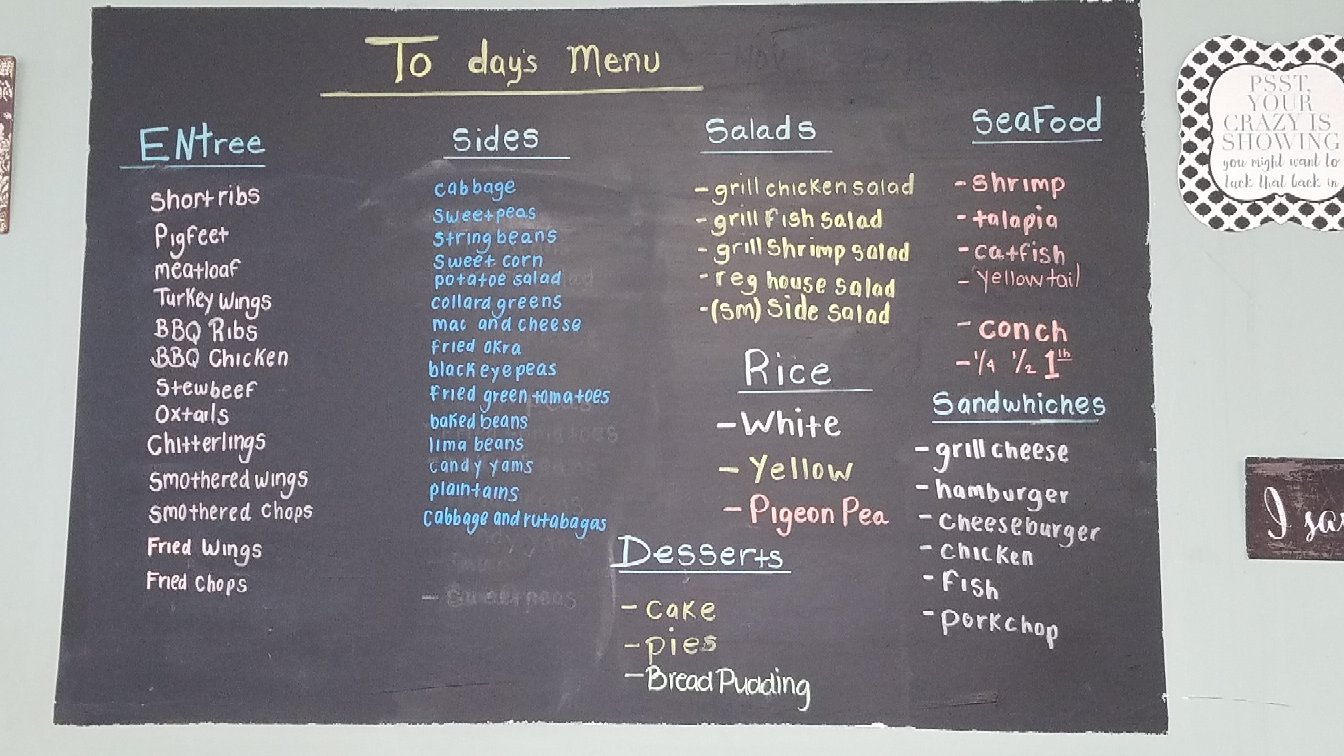 To day's Menu
ENtree
Short ribs
Pigfeet
meatloaf
Turkey Wings
BBQ Ribs
BBQ Chicken
Stewbeef
Oxtails
Chitterlings
Smothered wings
Smothered Chops
Fried Wings
Fried Chops
Sides
cabbage
Sweetpeas
String beans
Sweet corn
potatoe salad
collard greens
mac and cheese
Fried Okra
black eye peas
Fried green tomatoes
baked beans
lima beans
candy yams
plaintains
cabbage and rutabagas
Salads
- grill chicken salad
- grill Fish Salad
- grill Shrimp salad
- reg house salad
- (Sm) Side Salad
Rice
- White
- Yellow
- Pigeon Pea
Desserts
- Cake
- pies
- Bread Pudding
SeaFood
- Shrimp
- talapia
- catfish
- Yellowtail
- Conch
- 1/4 1/2 1 lb
Sandwhiches
- grill cheese
- hamburger
- Cheeseburger
- Chicken
- Fish
- porkchop
PSST,
YOUR
CRAZY IS
SHOWING
you might want to
tuck that back in
I